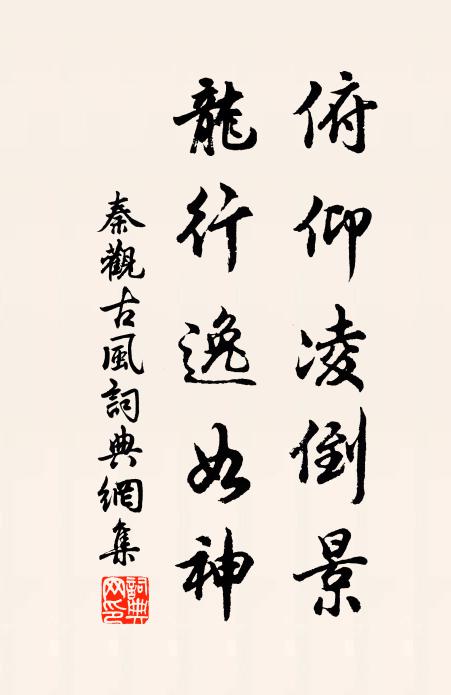 俯仰凌倒景
龍行逸如神
秦觀古風詞典網集
詞典網印